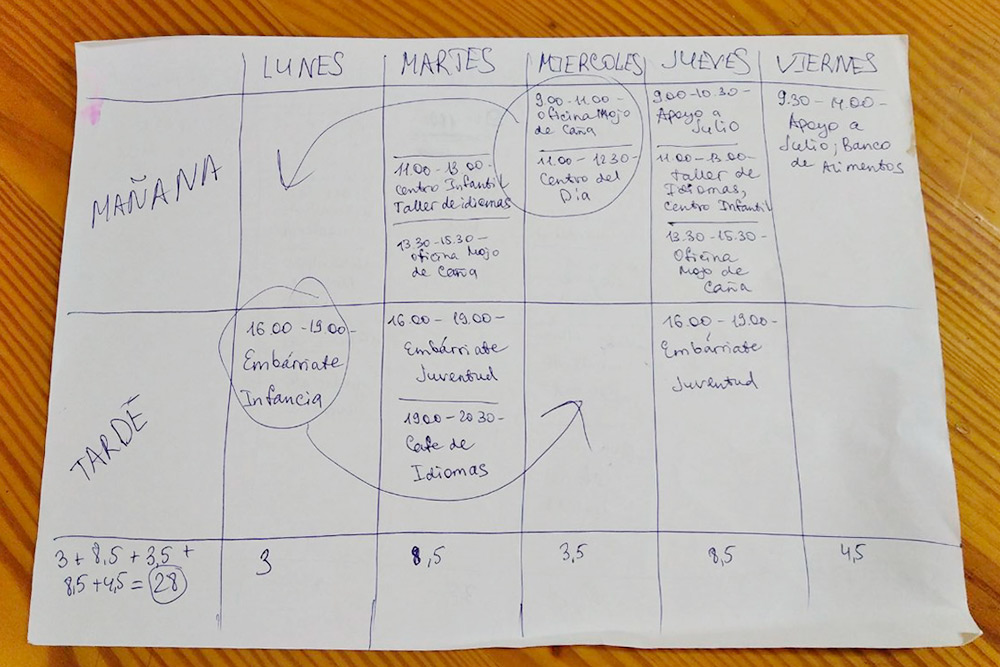 LUNES MARTES MIERCOLES JUEVES VIERNES
MAÑANA
11.00 - 13.00 -
Centro Infantil
Taller de idiomas
13.30 - 15.30 -
Oficina Mojo
de Caña
9.00 - 11.00 -
Oficina Mojo
de Caña
11.00 - 12.30 -
Centro del
Día
9.00 - 10.30 -
Apoyo a
Julio
11.00 - 13.00 -
Taller de
Idiomas,
Centro Infantil
13.30 - 15.30 -
Oficina
Mojo de
Caña
9.30 - 14.00 -
Apoyo a
Julio; Banco
de Alimentos
TARDE
16.00 - 19.00 -
Embárriate
Infancia
16.00 - 19.00 -
Embárriate
Juventud
19.00 - 20.30 -
Cafe de
Idiomas
16.00 - 19.00 -
Embárriate
Juventud
3 + 8,5 + 3,5 +
8,5 + 4,5 = 28
3 8,5 3,5 8,5 4,5